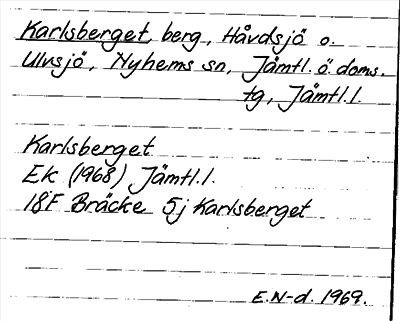 Karlsberget, berg, Håvdsjö o.
Ulvsjö, Nyhems sn, Jämtl. ö. doms.
tg, Jämtl. l.
Karlsberget
Ek (1968) Jämtl. l.
18F Bräcke 5j Karlsberget
E.N-d. 1969.